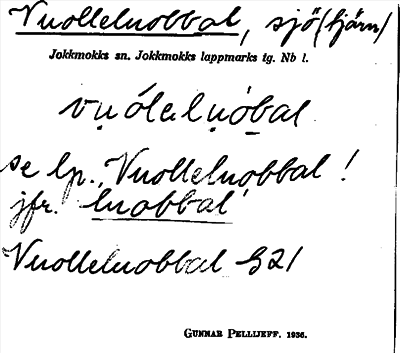 Vuollelnobbal, sjö (tjärn)
Jokkmokks sn. Jokkmokks lappmarks tg. Nb l.
vu̦ólel̦nóbal
se lp. Vuollelnobbal!
jfr. luobbal
Vuollelnobbal §21
GUNNAR PELLIJEFF. 1936.